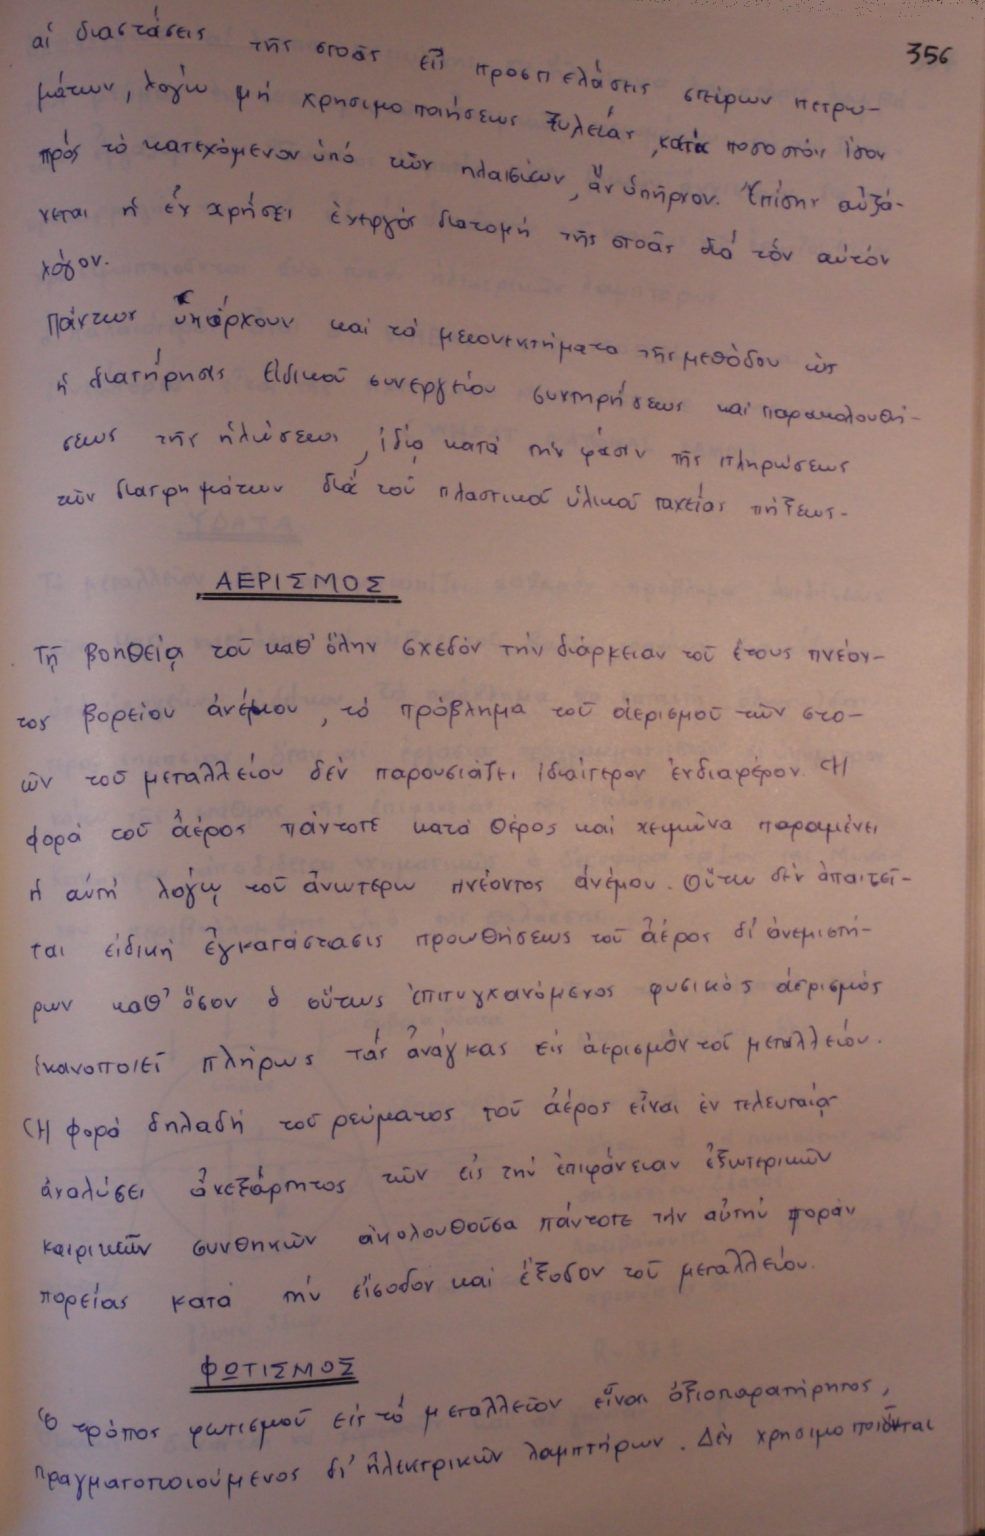 356
αἱ διαστάσεις τῆς στοᾶς εἰς προσπελάσεις στείρων πετρω-
μάτων, λόγῳ μή χρησιμοποιήσεως ξυλείας, κατά ποσοστόν ἴσον
πρός τό κατεχόμενον ὑπό τῶν πλαισίων, ἄν ὑπῆρχον. Ἐπίσης αὐξά-
νεται ἡ ἐν χρήσει ἐνεργός διατομή τῆς στοᾶς διά τόν αὐτόν
λόγον.
Πάντως ὑπάρχουν καί τά μειονεκτήματα τῆς μεθόδου ὡς
ἡ διατήρησις εἰδικοῦ συνεργείου συντηρήσεως καί παρακολουθή-
σεως τῆς ἡλώσεως, ἰδίᾳ κατά τήν φάσιν τῆς πληρώσεως
τῶν διατρημάτων διά τοῦ πλαστικοῦ ὑλικοῦ ταχείας πήξεως.
ΑΕΡΙΣΜΟΣ
Τῇ βοηθείᾳ τοῦ καθ' ὅλην σχεδόν τήν διάρκειαν τοῦ ἔτους πνέον-
τος βορείου ἀνέμου, τό πρόβλημα τοῦ ἀερισμοῦ τῶν στο-
ῶν τοῦ μεταλλείου δέν παρουσιάζει ἰδιαίτερον ἐνδιαφέρον. Ἡ
φορά τοῦ ἀέρος πάντοτε κατά θέρος καί χειμῶνα παραμένει
ἡ αὐτή λόγῳ τοῦ ἀνωτέρω πνέοντος ἀνέμου. Οὕτω δέν ἀπαιτεῖ-
ται εἰδική ἐγκατάστασις προωθήσεως τοῦ ἀέρος δι' ἀνεμιστή-
ρων καθ' ὅσον ὁ οὕτως ἐπιτυγχανόμενος φυσικός ἀερισμός
ἱκανοποιεῖ πλήρως τάς ἀνάγκας εἰς ἀερισμόν τοῦ μεταλλείου.
Ἡ φορά δηλαδή τοῦ ρεύματος τοῦ ἀέρος εἶναι ἐν τελευταίᾳ
ἀναλύσει ἀνεξάρτητος τῶν εἰς τήν ἐπιφάνειαν ἐξωτερικῶν
καιρικῶν συνθηκῶν ἀκολουθοῦσα πάντοτε τήν αὐτήν φοράν
πορείας κατά τήν εἴσοδον καί ἔξοδον τοῦ μεταλλείου.
ΦΩΤΙΣΜΟΣ
Ὁ τρόπος φωτισμοῦ εἰς τό μεταλλεῖον εἶναι ἀξιοπαρατήρητος,
πραγματοποιούμενος δι' ἠλεκτρικῶν λαμπτήρων. Δέν χρησιμοποιοῦνται